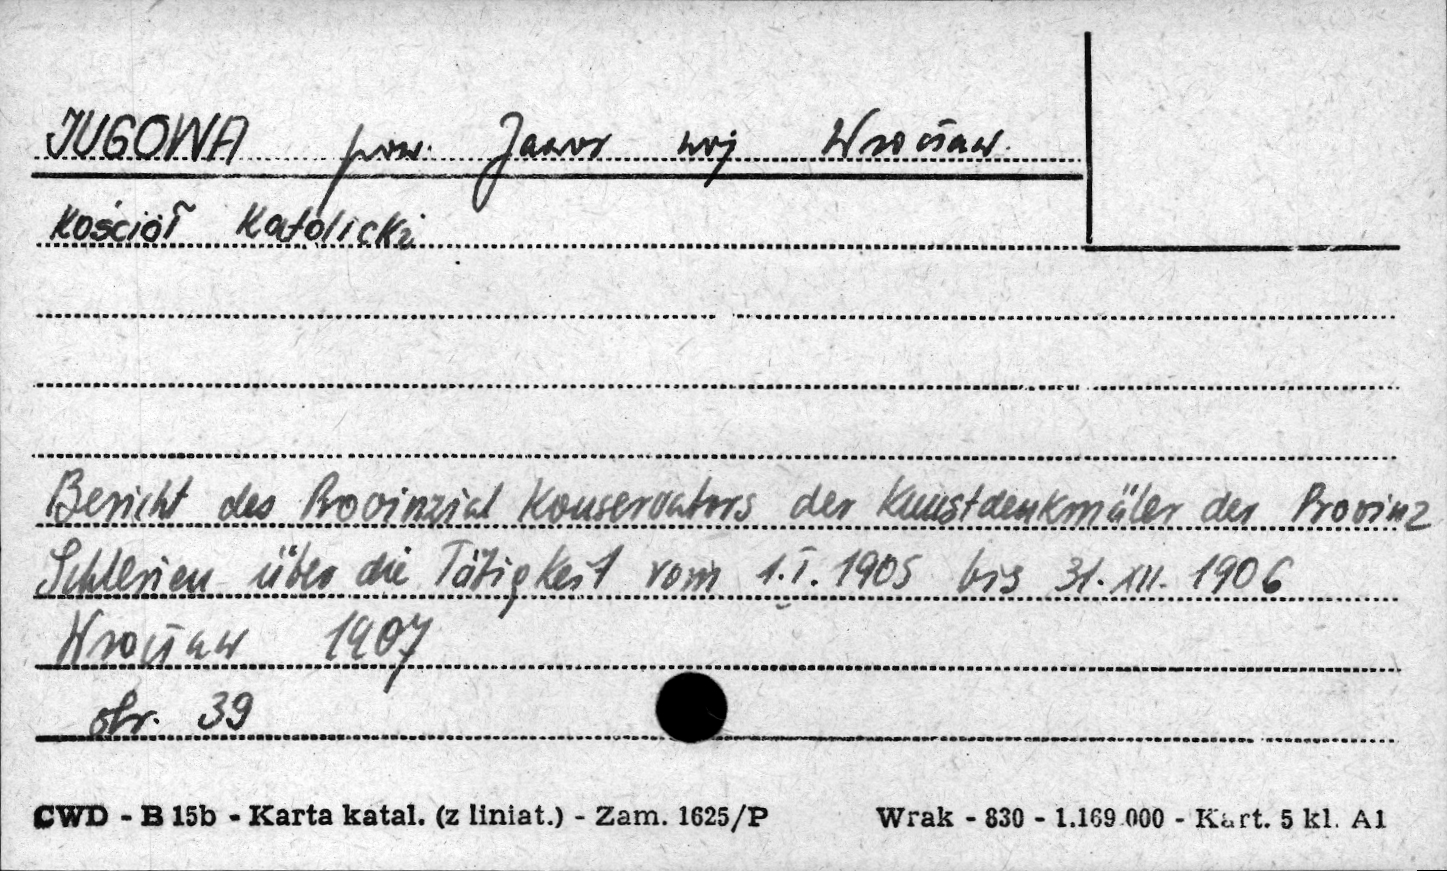 JUGOWA pow. Jawor woj Wrocław.
Kościół Katolicki
Bericht des Provinzial Konservators der Kunstdenkmäler der Provinz
Schlesien über die Tätigkeit vom 1.I.1905 bis 31.XII.1906
Wrocław 1907
str. 39
CWD - B 15b - Karta katal. (z liniat.) - Zam. 1625/P Wrak - 830 - 1.169.000 - Kart. 5 kl. A1